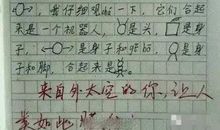 ,前仔细观察一下,它们合起
来是一个机器人,是头,是身
子,是身子和胳膊,是身
子和脚,合起来是
来自外太空的你,让人
累如此